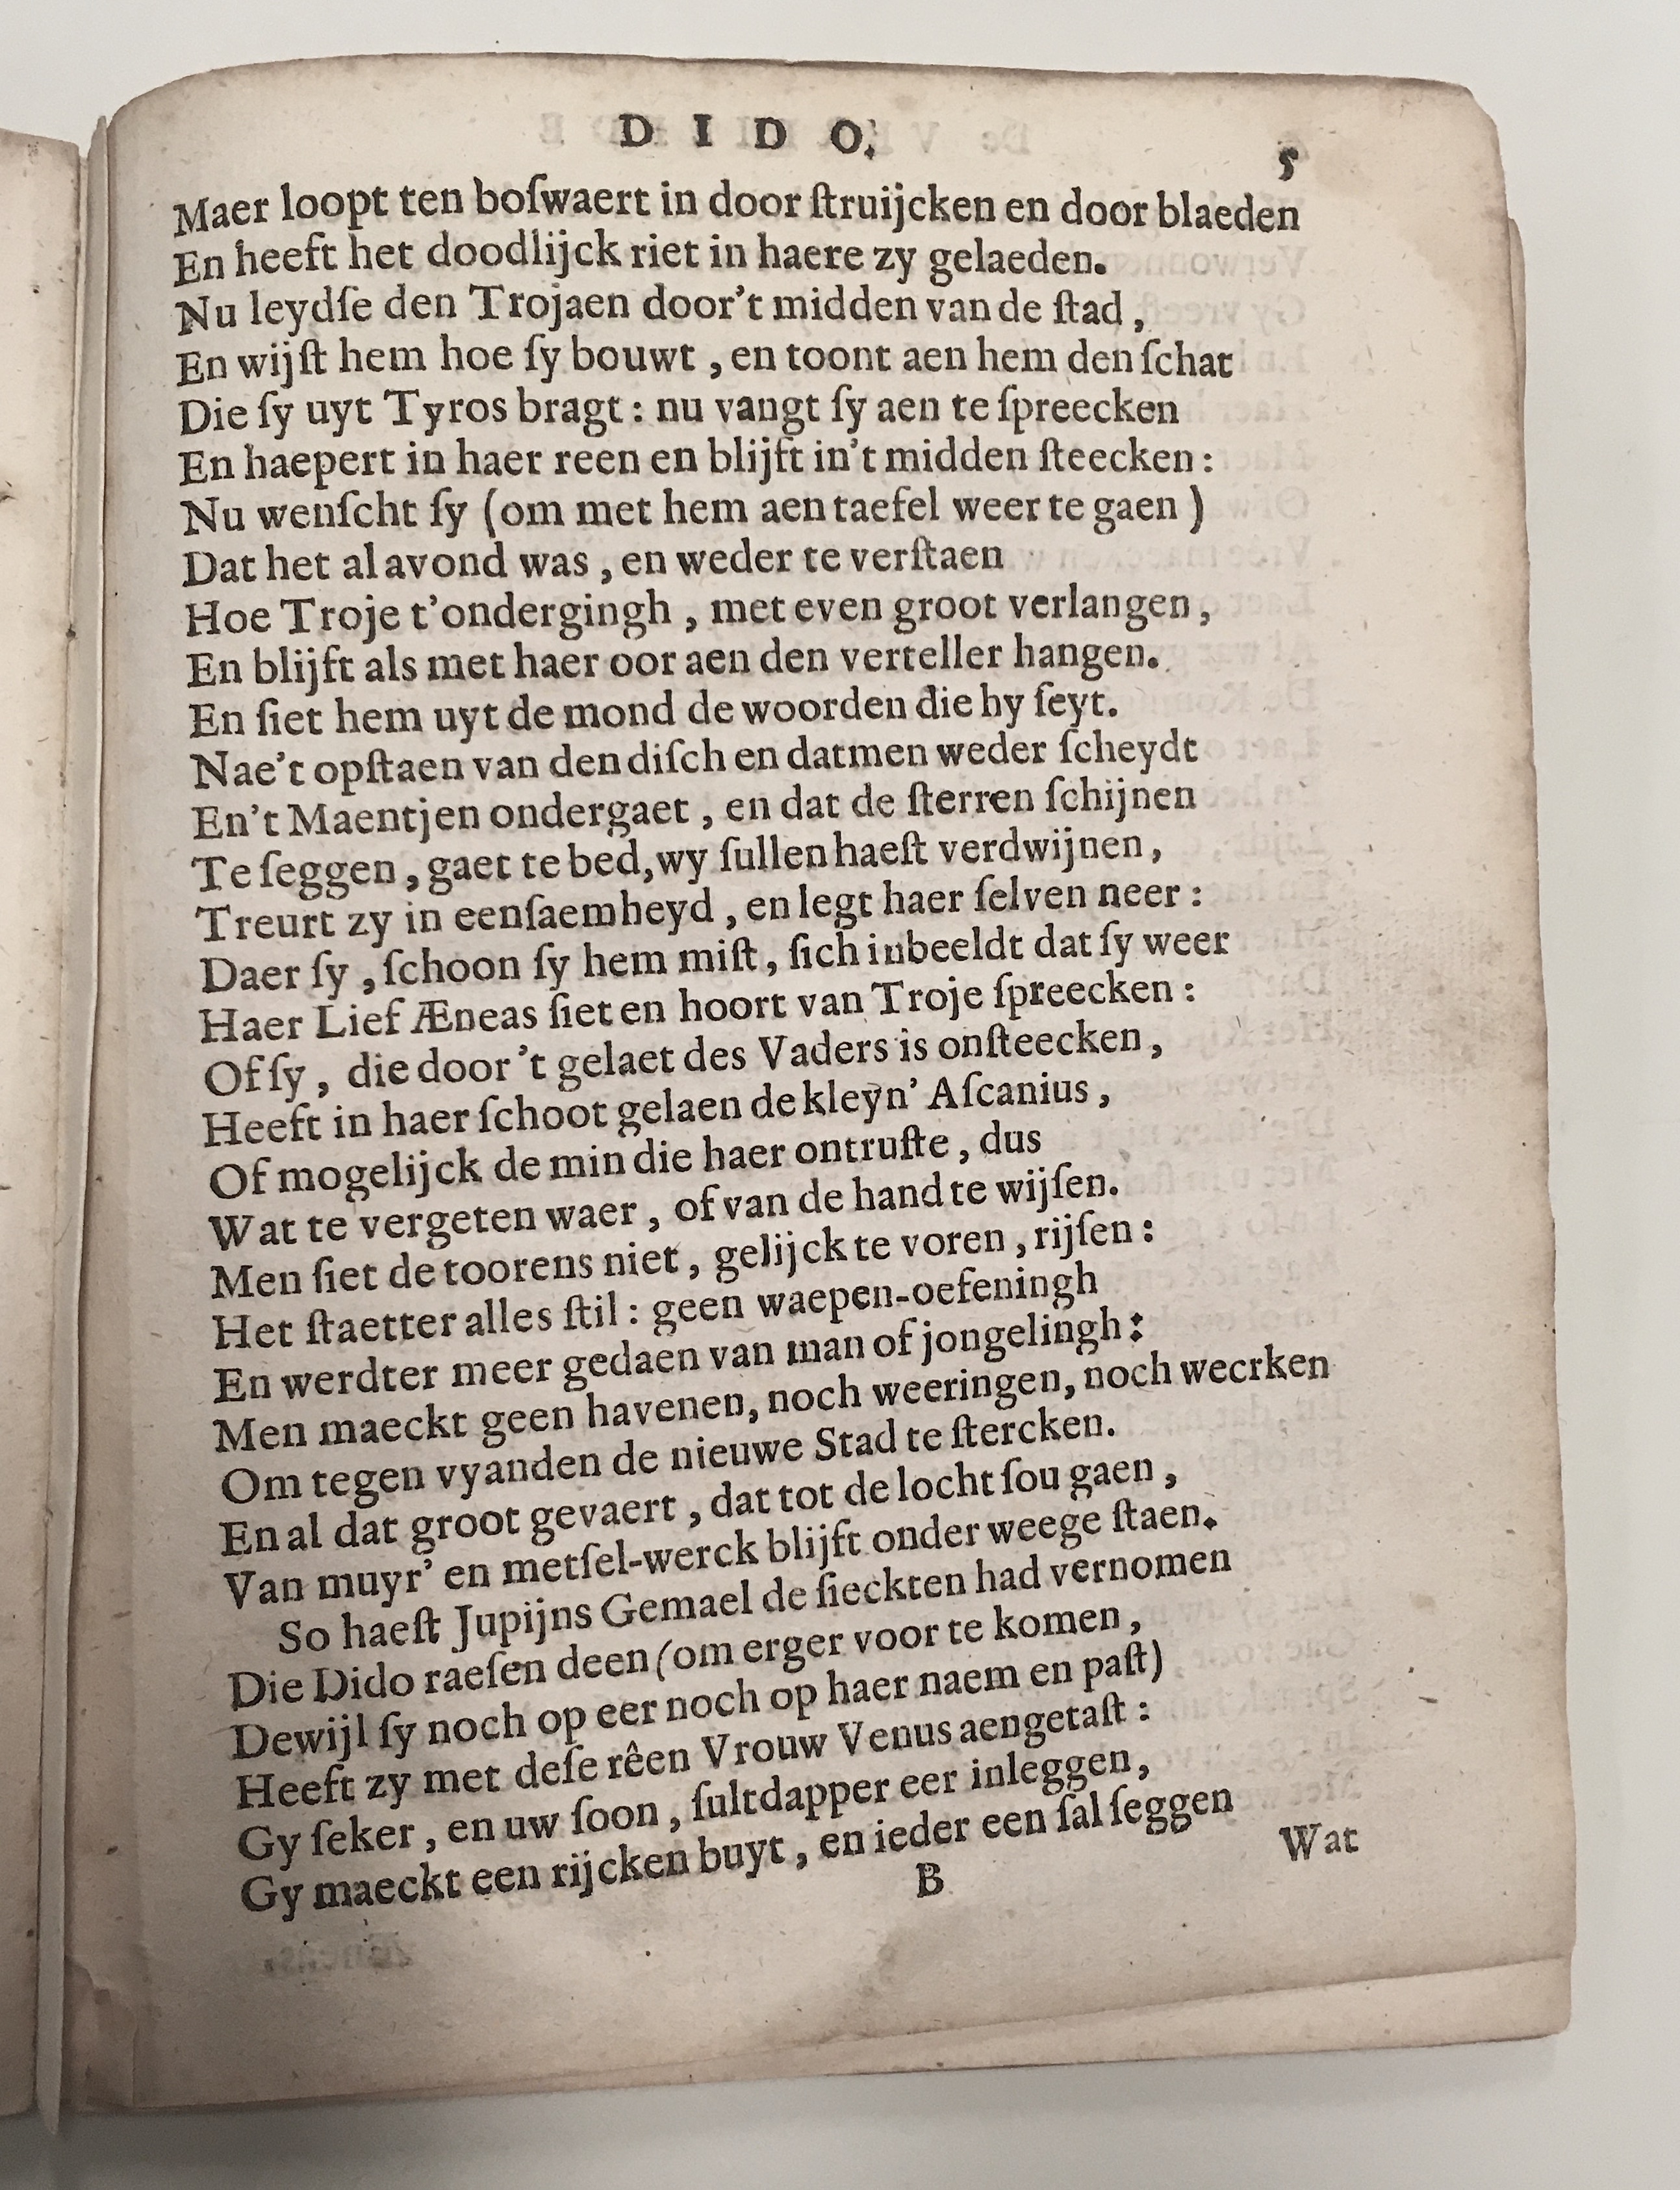 DIDO. 5
Maer loopt ten boſwaert in door ſtruijcken en door blaeden
En heeft het doodlijck riet in haere zy gelaeden.
Nu leydſe den Trojaen door't midden van de ſtad,
En wijſt hem hoe ſy bouwt, en toont aen hem den ſchat
Die ſy uyt Tyros bragt: nu vangt ſy aen te ſpreecken
En haepert in haer reen en blijft in't midden ſteecken:
Nu wenſcht ſy (om met hem aen taefel weer te gaen)
Dat het al avond was, en weder te verſtaen
Hoe Troje t'ondergingh, met even groot verlangen,
En blijft als met haer oor aen den verteller hangen.
En ſiet hem uyt de mond de woorden die hy ſeyt.
Nae't opſtaen van den diſch en datmen weder ſcheydt
En't Maentjen ondergaet, en dat de ſterren ſchijnen
Te ſeggen, gaet te bed, wy ſullen haeſt verdwijnen,
Treurt zy in eenſaemheyd, en legt haer ſelven neer:
Daer ſy, ſchoon ſy hem miſt, ſich inbeeldt dat ſy weer
Haer Lief Æneas ſiet en hoort van Troje ſpreecken:
Of ſy, die door 't gelaet des Vaders is onſteecken,
Heeft in haer ſchoot gelaen de kleyn' Aſcanius,
Of mogelijck de min die haer ontruſte, dus
Wat te vergeten waer, of van de hand te wijſen.
Men ſiet de toorens niet, gelijck te voren, rijſen:
Het ſtaetter alles ſtil: geen waepen-oefeningh
En werdter meer gedaen van man of jongelingh:
Men maeckt geen havenen, noch weeringen, noch wecrken
Om tegen vyanden de nieuwe Stad te ſtercken.
En al dat groot gevaert, dat tot de locht ſou gaen,
Van muyr' en metſel-werck blijft onder weege ſtaen.
So haeſt Jupijns Gemael de ſieckten had vernomen
Die Dido raeſen deen (om erger voor te komen,
Dewijl ſy noch op eer noch op haer naem en paſt)
Heeft zy met deſe rêen Vrouw Venus aengetaſt:
Gy ſeker, en uw ſoon, ſult dapper eer inleggen,
Gy maeckt een rijcken buyt, en ieder een ſal ſeggen
B Wat